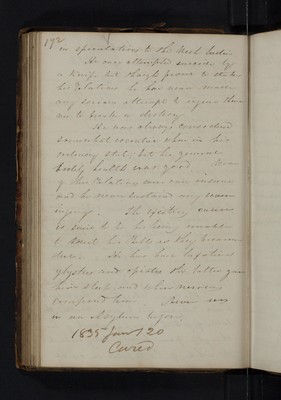 172
in speculations to the West Indies.
He once attempted suicide by
a Knife, but though prone to strike
his Relations he has never made
any serious attempt to injure them
nor to break or destroy
He was always considered
somewhat eccentric when in his
ordinary state, but his general
bodily health was good. None
of his Relations were ever insane
and he never sustained any
injury. The exciting cause
is said to be his being unable
to meet his Bills as they became
due. He has had laxatives
glysters and opiates the latter gave
him sleep, and when nervous
composed him. Never was
in an Asylum before.
1835 Jany 20
Cured